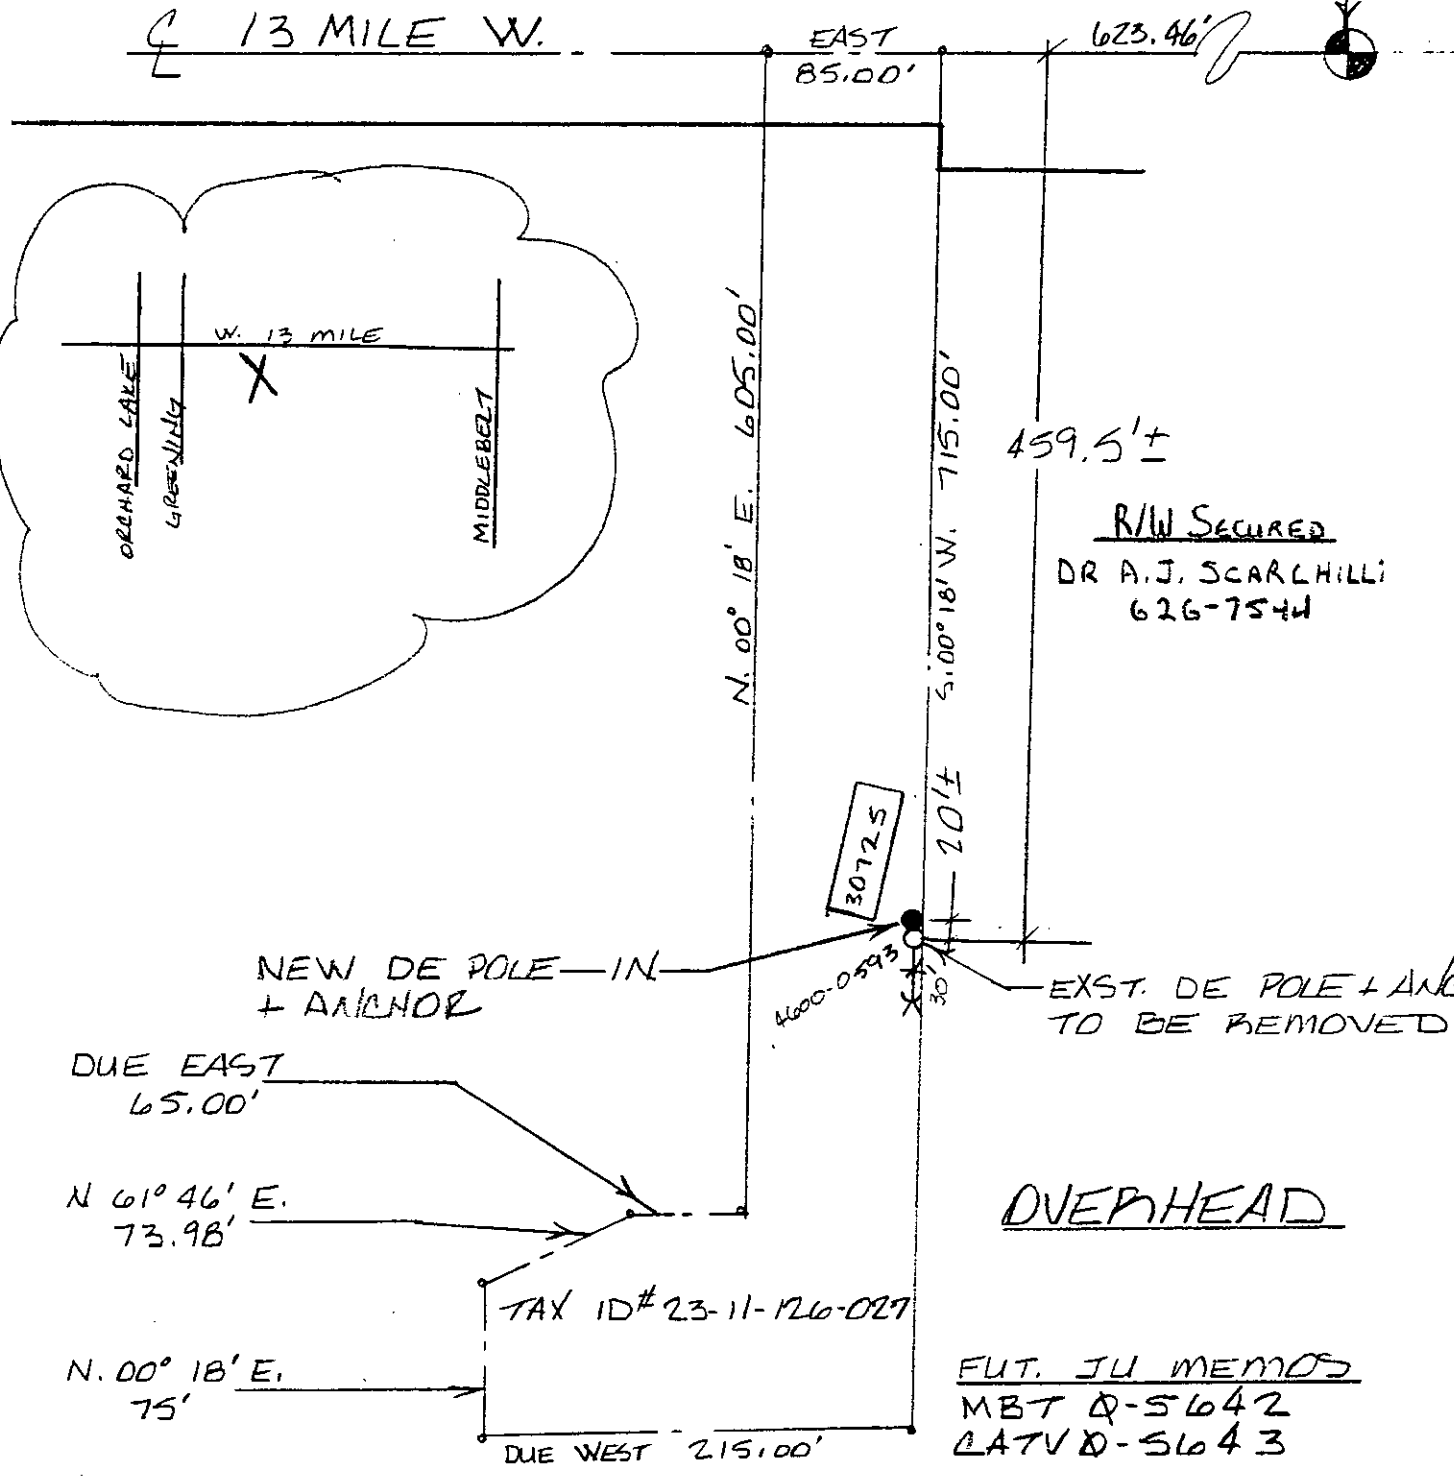 ℄ 13 MILE W.
EAST
85.00'
623.46'
W. 13 MILE
ORCHARD LAKE
GREENING
MIDDLEBELT
N. 00° 18' E. 605.00'
S. 00° 18' W. 715.00'
459.5'±
R/W SECURED
DR A.J. SCARCHILLi
626-7544
20'±
30725
NEW DE POLE — IN
+ ANCHOR
4600-0593
30'
EXST. DE POLE + ANC
TO BE REMOVED
DUE EAST
65.00'
N 61° 46' E.
73.98'
OVERHEAD
TAX ID# 23-11-126-027
N. 00° 18' E.
75'
DUE WEST 215.00'
FUT. JU MEMOS
MBT Q-5642
CATV Q-5643